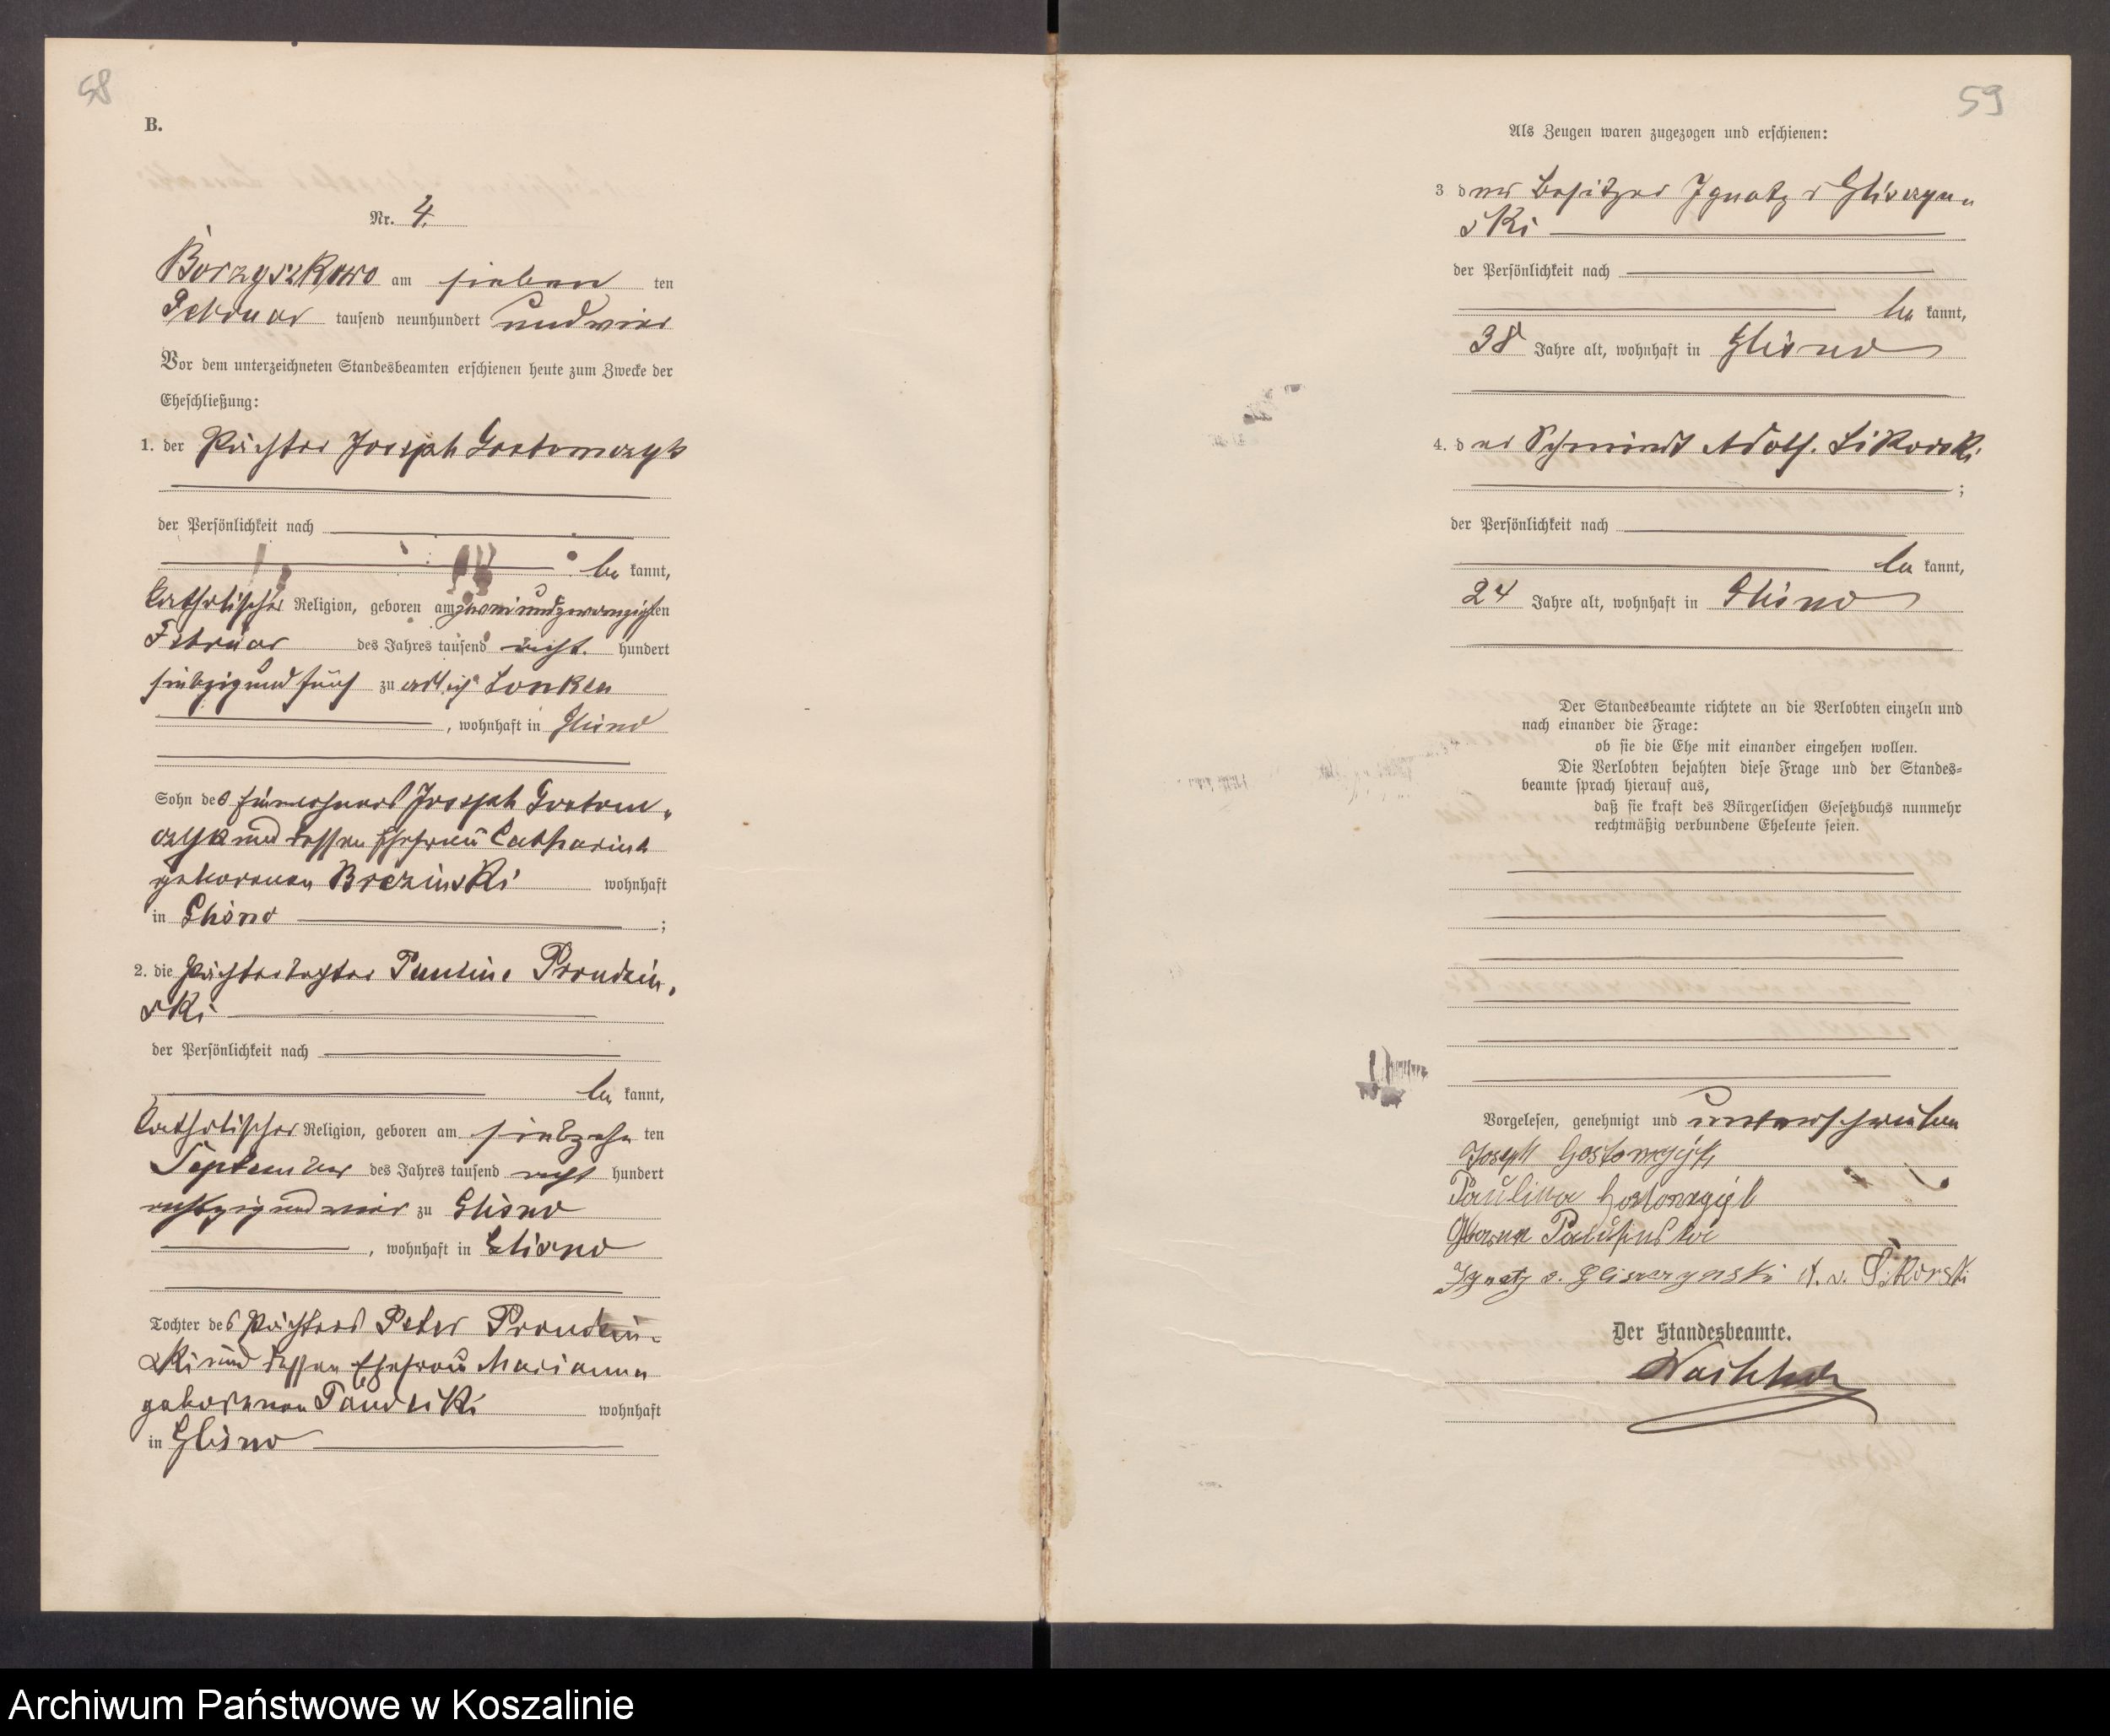 58
B.
Nr. 4.
Borzyszkowo am sieben ten
Februar tausend neunhundert und vier
Vor dem unterzeichneten Standesbeamten erschienen heute zum Zwecke der
Eheschließung:
1. der Pächter Joseph Gostomczyk
der Persönlichkeit nach
be kannt,
katholischer Religion, geboren am zweiundzwanzigsten
Februar des Jahres tausend acht hundert
siebzig und fünf zu adlich Lonken
, wohnhaft in Glisno
Sohn des Einwohners Joseph Gostom-
czyk und dessen Ehefrau Catharina
geborenen Brezinski wohnhaft
in Glisno ;
2. die Pächtertochter Pauline Prondzin-
ski
der Persönlichkeit nach
be kannt,
katholischer Religion, geboren am siebzehn ten
September des Jahres tausend acht hundert
achtzig und vier zu Glisno
, wohnhaft in Glisno
Tochter des Pächters Peter Prondzin-
ski und dessen Ehefrau Marianna
geborenen wohnhaft
in Glisno
59
Als Zeugen waren zugezogen und erschienen:
3 der Besitzer Ignatz v Gliszczyn-
ski
der Persönlichkeit nach
be kannt,
38 Jahre alt, wohnhaft in Glisno
4. d er Schmied Adolf. Sikorski
;
der Persönlichkeit nach
be kannt,
24 Jahre alt, wohnhaft in Glisno
Der Standesbeamte richtete an die Verlobten einzeln und
nach einander die Frage:
ob sie die Ehe mit einander eingehen wollen.
Die Verlobten bejahten diese Frage und der Standes=
beamte sprach hierauf aus,
daß sie kraft des Bürgerlichen Gesetzbuchs nunmehr
rechtmäßig verbundene Eheleute seien.
Vorgelesen, genehmigt und unterschrieben
Joseph Gostomczyk
Paulina Gostomczyk
Ignatz v. Gliszczynski A. v. Sikorski
Der Standesbeamte.
Archiwum Państwowe w Koszalinie